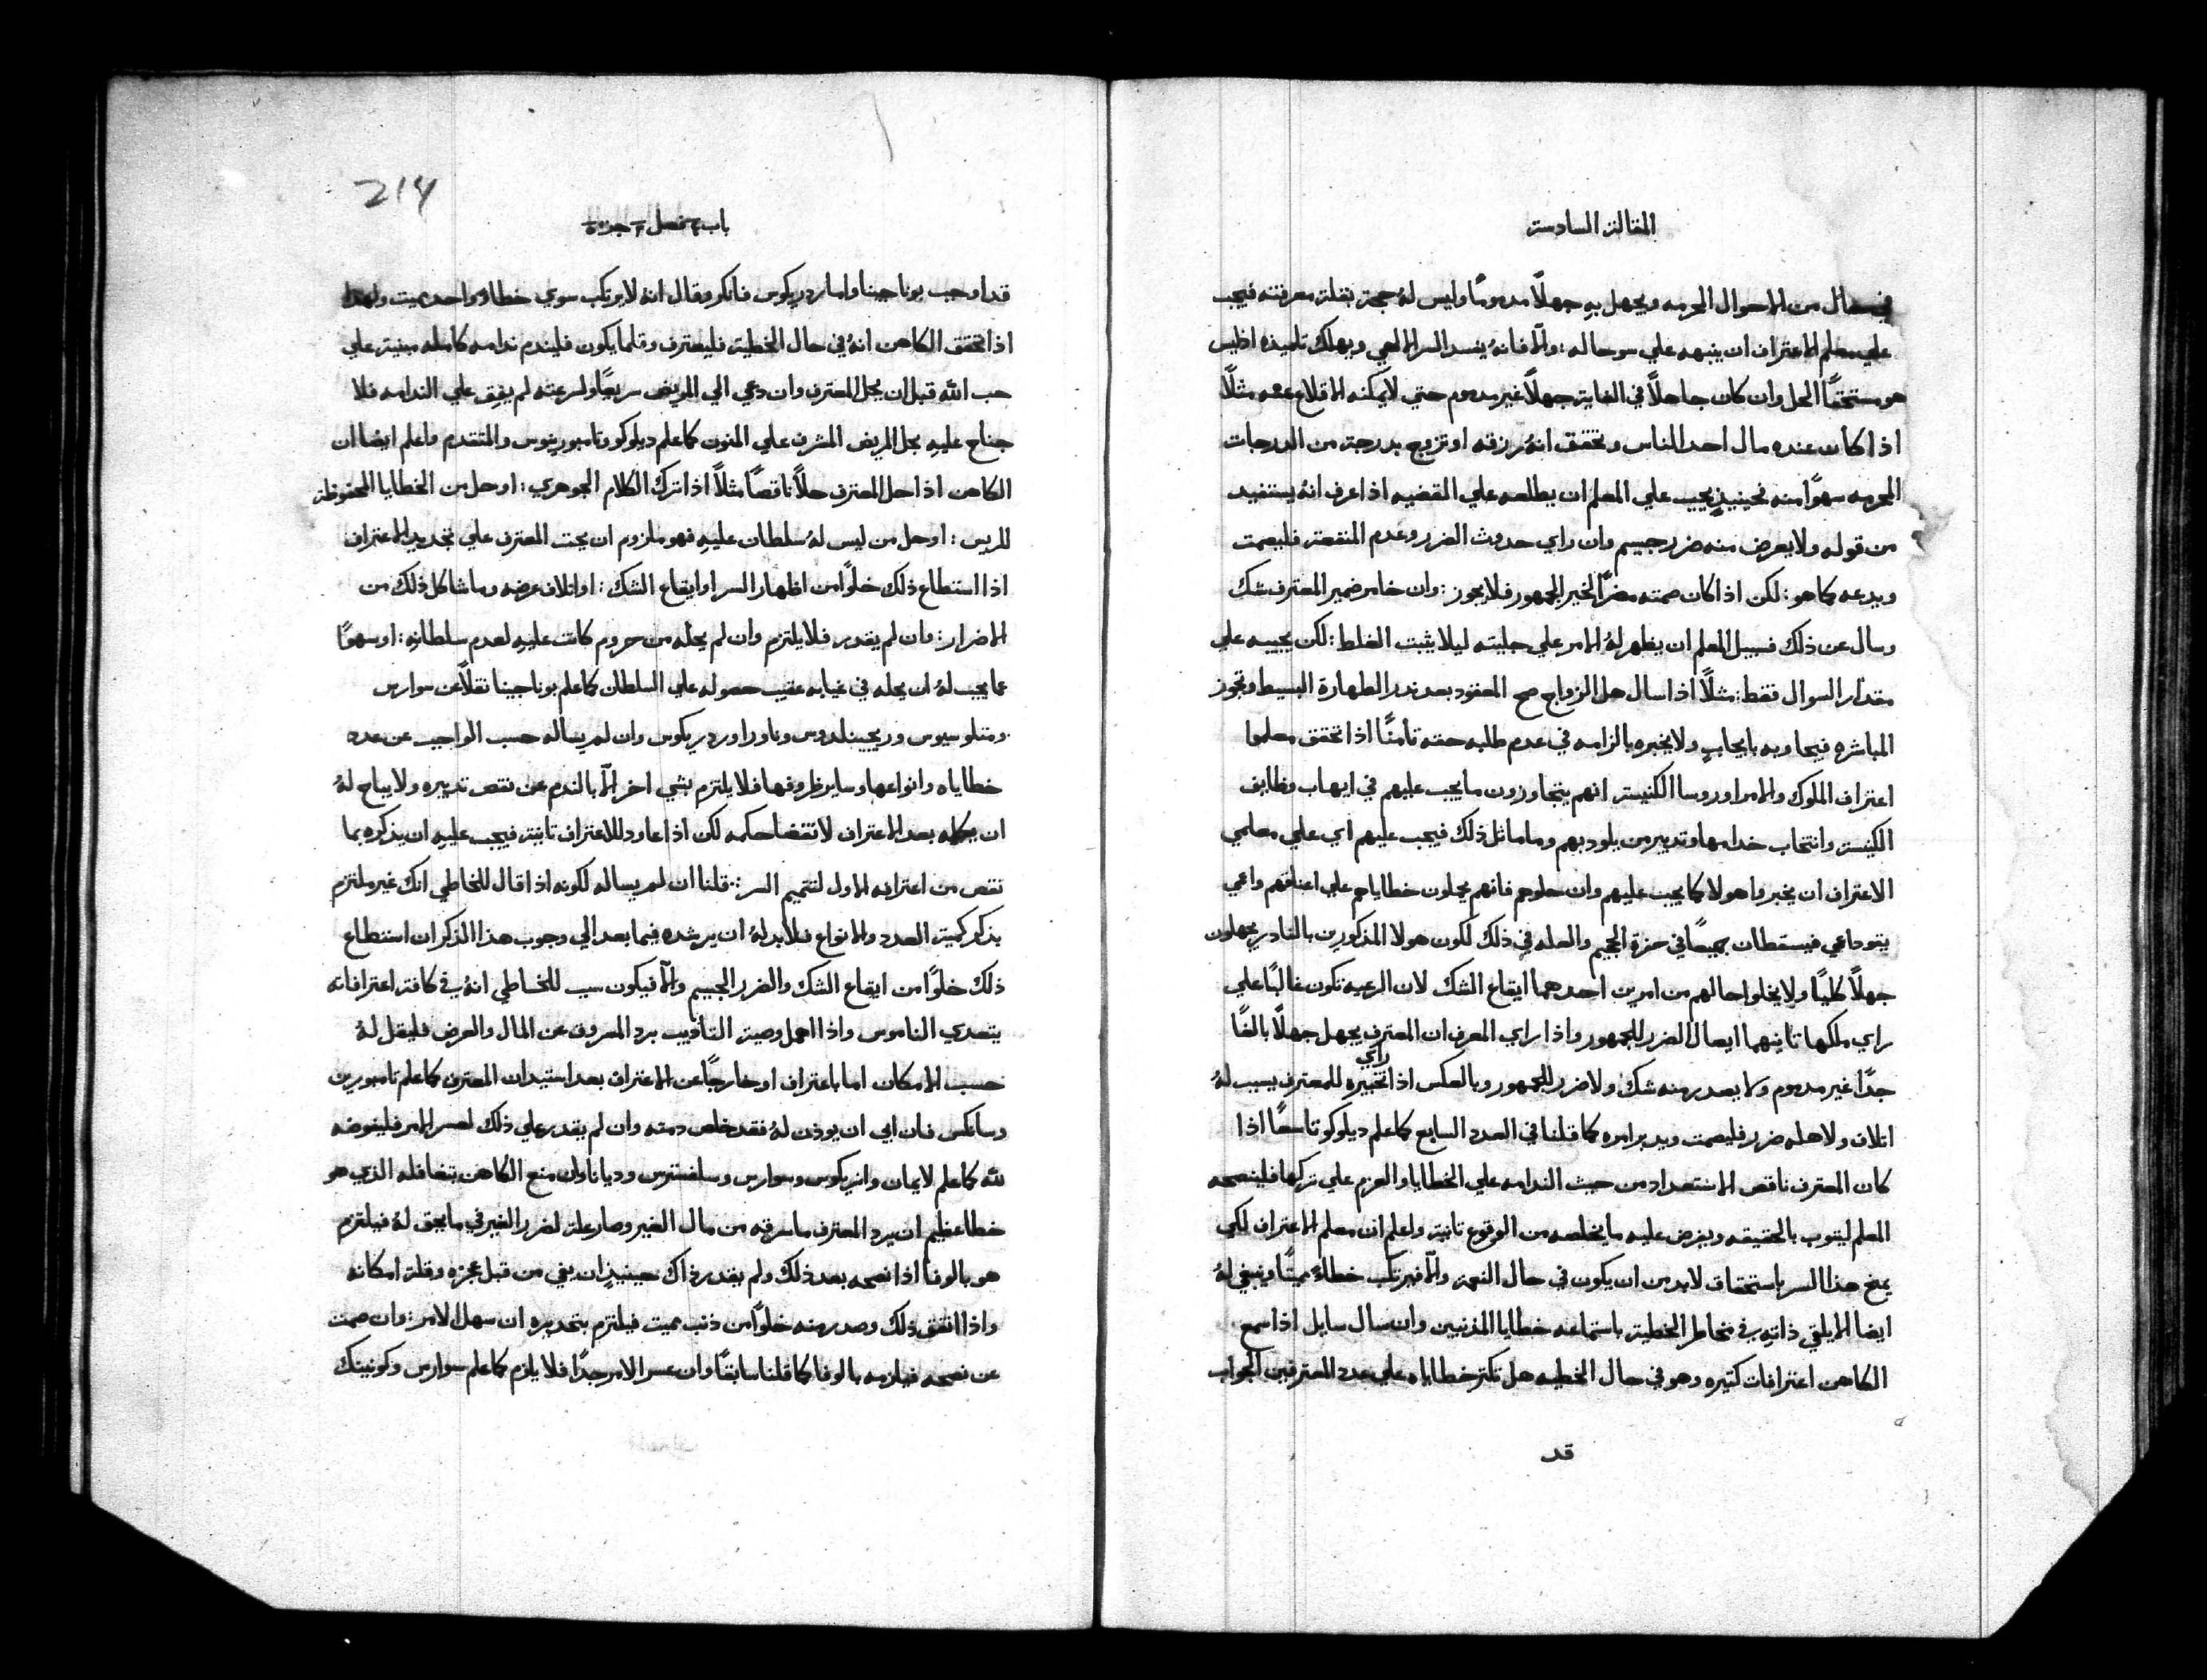 المقالة السادسة
في حال من الاحوال المحرمه ويجهل به جهلًا مدمومًا وليس لهُ حجة بقلة معرفته فيجب
علي معلم الاعتراف ان ينبهه علي سو حاله: والّا فانهُ يفسد السر الالهي ويهلك تلميذه اذ ليس
هو مستحقًا الحل وان كان جاهلًا في الغاية جهلًا غير مدموم حتي لا يمكنه الاقلاع عنه مثلًا
اذا كان عنده مال احد الناس وتحقق انهُ رزقه او تزوج بدرجة من الدرجات
المحرمه سهوًا منه فحينيذٍ يجب علي المعلم ان يطلعه علي القضيه اذا عرف انهُ يستفيد
من قوله ولا يعرض منه ضرر جسيم وان راي حدوث الضرر وعدم المنفعة فليصمت
ويدعه كما هو: لكن اذا كان صمته مضرًا لخير الجمهور فلا يجوز: وان خامر ضمير المعترف شك
وسال عن ذلك فسبيل المعلم ان يظهر لهُ الامر علي جليته ليلا يثبت الغلط: لكن يجيبه علي
مقدار السوال فقط: مثلًا اذا سال هل الزواج صح المعقود بعد ندر الطهارة البسيط وتجوز
المباشره فيجاوبه بايجابٍ ولا يخبره بالزامه في عدم طلبه حقه تامنًا اذا تحقق معلموا
اعتراف الملوك والامرا وروسا الكنيسة انهم يتجاوزون ما يجب عليهم في ايهاب وظايف
الكنيسة وانتخاب خدامها وتدبير من يلود بهم وما ماثل ذلك فيجب عليهم اي علي معلمي
الاعتراف ان يخبروا هولا كما يجب عليهم وان حلوهم فانهم يحملون خطاياهم علي اعناقهم واعمي
يقود اعمي فيسقطان جميعًا في حفرة الجحيم والعله في ذلك لكون هولا المذكورين بالنادر يجهلون
جهلًا كليًا ولا يخلوا حالهم من امرين احدهما ايقاع الشك لان الرعيه تكون غالبًا علي
راي ملكها ثانيهما ايصال الضرر للجمهور واذا راي المعرف ان المعترف يجهل جهلًا بالغًا
جدًا غير مدموم ولا يصدر منه شك ولا ضرر للجمهور وبالعكس اذا راي تخبيره للمعترف يسبب لهُ
اتلاف ولاهله ضرر فليصمت ويدبر امره كما قلنا في العدد السابع كما علم ديلوكو تاسعًا اذا
كان المعترف ناقص الاستعداد من حيث الندامه علي الخطايا والعزم علي تركها فلينصحه
المعلم ليتوب بالحقيقه ويفرض عليه ما يخلصه من الوقوع تانية واعلم ان معلم الاعتراف لكي
يمنح هذا السر باستحقاق لابد من ان يكون في حال النعمة والّا فيرتكب خطاءً مميتًا وينبغي لهُ
ايضا الا يلقي ذاته في مخاطر الخطية باستماعه خطايا المذنبين وان سال سايل اذا سمع
الكاهن اعترافات كتيره وهو في حال الخطيه هل تكتر خطاياه علي عدد المعترفين الجواب
قد
214
باب فصل جزء
قد اوجب بوناجينا واما ردريكوس فانكر وقال انهُ لا يرتكب سوي خطاء واحد مميت ولهذا
اذا تحقق الكاهن انهُ في حال الخطية فليعترف وقلما يكون فليندم ندامه كامله مبنية علي
حب الله قبل ان يحل المعترف وان دعي الي المريض سريعًا ولسرعته لم يفق علي الندامه فلا
جناح عليهِ بحل المريض المشرف علي المنون كما علم ديلوكو وتامبورينوس والمتقدم واعلم ايضا ان
الكاهن اذا حل المعترف حلًا ناقصًا مثلًا اذا ترك الكلام الجوهري: او حل من الخطايا المحفوظة
للريس: او حل من ليس لهُ سلطان عليهِ فهو ملزوم ان يحت المعترف علي تجديد الاعتراف
اذا استطاع ذلك خلوًا من اظهار السر او ايقاع الشك: او اتلاف عرضه وما شاكل ذلك من
الاضرار: وان لم يقدر فلا يلتزم وان لم يحله من حروم كانت عليهِ لعدم سلطانهِ: او سهوًا
عما يجب لهُ ان يحله في غيابه عقيب حصوله علي السلطان كما علم بوناجينا نقلًا عن سوارس
ومتلوسيوس وريجينلدوس وناورا وردريكوس وان لم يساله حسب الواجب عن عدد
خطاياه وانواعها وساير ظروفها فلا يلتزم بشي اخر الّا بالندم عن نقص تدبيره ولا يباح لهُ
ان يكلمه بعد الاعتراف لانقضا حكمه لكن اذا عاود للاعتراف تانية فيجب عليهِ ان يذكره بما
نقص من اعترافه الاول لتتميم السر: قلنا ان لم يساله لكونه اذا قال للخاطي انك غير ملتزم
بذكر كمية العدد والانواع فلابد لهُ ان يرشده فيما بعد الي وجوب هذا الذكر ان استطاع
ذلك خلوًا من ايقاع الشك والضرر الجسيم والّا فيكون سبب للخاطي انهُ في كافة اعترافاته
يتعدي الناموس واذا اهمل وصية التاديب برد المعروف عن المال والعرض فليقل لهُ
حسب الامكان اما باعتراف او خارجًا عن الاعتراف بعد استيدان المعترف كما علم تامبورين
وسانكس فان ابي ان يوذن لهُ فقد خلص دمته وان لم يقدر علي ذلك لعسر الامر فليفوضه
لله كما علم لايمان وانريكوس وسوارس وسلفسترس وديانا وان منع الكاهن بتغافله الذي هو
خطا عظيم ان يرد المعترف ما سرقه من مال الغير وصار علة لضرر الغير في ما يحق لهُ فيلتزم
هو بالوفا اذا نصحه بعد ذلك ولم يقدر ذاك حينيذٍ ان يفي من قبل عجزه وقلة امكانه
واذا اتفق ذلك وصدر منه خلوًا من ذنب مميت فيلتزم بتحديره ان سهل الامر: وان صمت
عن نصحه فيلزمه بالوفا كما قلنا سابقًا وان عسر الامر جدًا فلا يلزم كما علم سوارس وكونينك